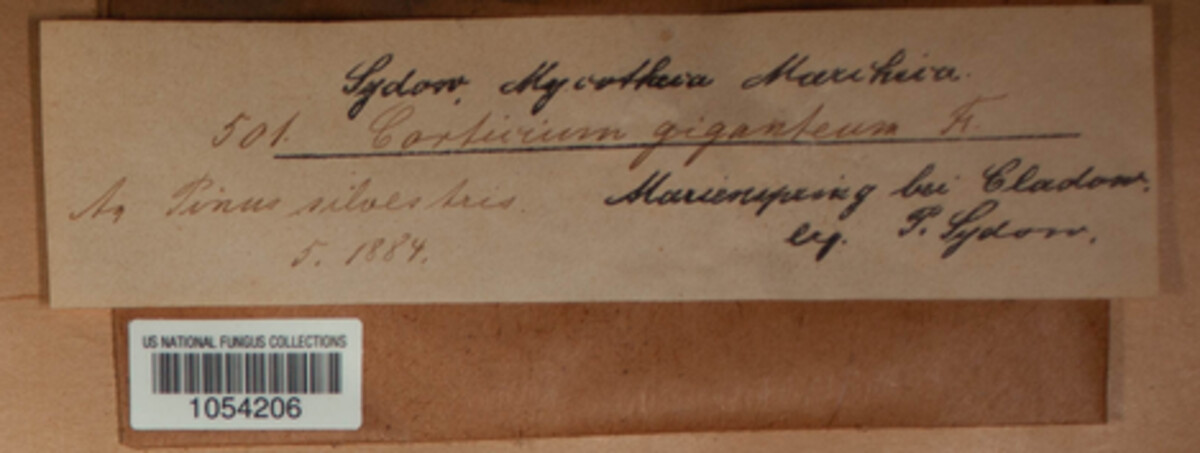 Sydow, Mycotheca Marchica.
501. Corticium giganteum Fr.
An Pinus silvestris. Marienspring bei Cladow.
5. 1884. leg. P. Sydow.
US NATIONAL FUNGUS COLLECTIONS
1054206